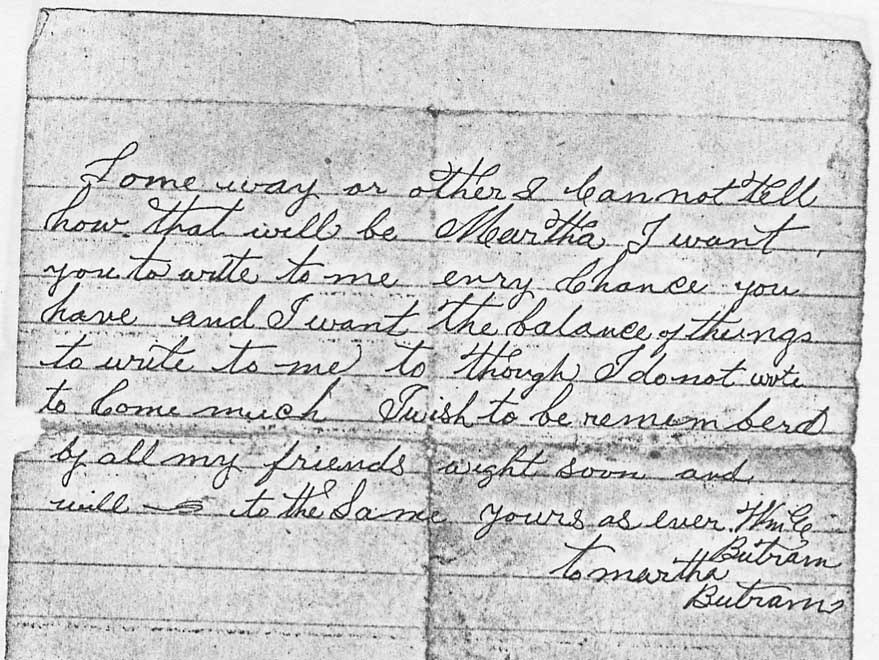 Some way or other I Cannot tell
how that will be Martha I want
you to write to me evry Chance you
have and I want the balance of things
to write to me to though I do not wote
to Come much I wish to be rememberd
by all my friends wight soon and
will to the Same yours as ever Wm C
Butram
to martha
Butram